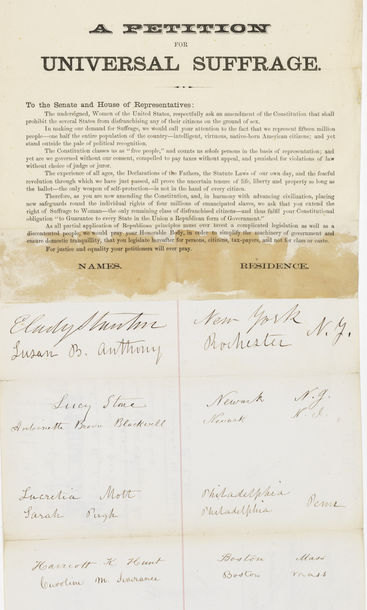 A PETITION
FOR
UNIVERSAL SUFFRAGE.
To the Senate and House of Representatives:
The undersigned, Women of the United States, respectfully ask an amendment of the Constitution that shall
prohibit the several States from disfranchising any of their citizens on the ground of sex.
In making our demand for Suffrage, we would call your attention to the fact that we represent fifteen million
people—one half the entire population of the country—intelligent, virtuous, native-born American citizens; and yet
stand outside the pale of political recognition.
The Constitution classes us as "free people," and counts us whole persons in the basis of representation; and
yet are we governed without our consent, compelled to pay taxes without appeal, and punished for violations of law
without choice of judge or juror.
The experience of all ages, the Declarations of the Fathers, the Statute Laws of our own day, and the fearful
revolution through which we have just passed, all prove the uncertain tenure of life, liberty and property so long as
the ballot—the only weapon of self-protection—is not in the hand of every citizen.
Therefore, as you are now amending the Constitution, and, in harmony with advancing civilization, placing
new safeguards round the individual rights of four millions of emancipated slaves, we ask that you extend the
right of Suffrage to Woman—the only remaining class of disfranchised citizens—and thus fulfil your Constitutional
obligation "to Guarantee to every State in the Union a Republican form of Government."
As all partial application of Republican principles must ever breed a complicated legislation as well as a
discontented people, we would pray your Honorable Body, in order to simplify the machinery of government and
ensure domestic tranquillity, that you legislate hereafter for persons, citizens, tax-payers, and not for class or caste.
For justice and equality your petitioners will ever pray.
NAMES. RESIDENCE.
E Cady Stanton New York N.Y.
Susan B. Anthony Rochester
Lucy Stone Newark N.J.
Antoinette Brown Blackwell Newark N.J.
Lucretia Mott Philadelphia Penn
Sarah Pugh Philadelphia
Harriott K Hunt Boston Mass
Caroline M. Severance Boston Mass